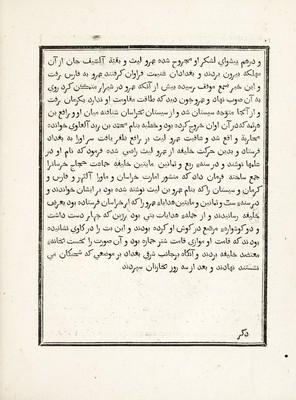 و درهم پیشوای لشکر او مجروح شده عمرو لیث و بقیة آلسّیف جان از آن
مهلکه بیرون بردند و بغدادیان غنیمت فراوان گرفتند عمرو به فارس رفت
و این خبر سمع موفّف رسیده بیش از آنکه عمرو در شیراز متمکّن گردد روی
به آن صوب نهاد و عمرو چون دید که طاقت مقاومت او ندارد بکرمان رفت
و از آنجا متوجه سیستان شد و از سیستان بخراسان شتافته میان او و رافع بن
هرثمه که در آن اوان خروج کرده بود و خطبه بنام محمد بن زید آلعلوی خوانده
محاربة واقع شد و عاقبت عمرو بر رافع ظفر یافت سر اورا به بغداد
فرستاد و بدین حرکت خلیفه از عمرو لیث راضی شده فرمود که نام او در
علمها نوشتند و در سنه ربع و ثمانین و مایتین خلیفه جماعت حجاج خراسانرا
جمع ساخته فرمان داد که منشور امارت خراسان و ماورا آلنهر و فارس و
کرمان و سیستان را که بنام عمرو بن لیث نوشته شده بود بر ایشان خواندند و
در سنه ست و ثمانین و مایتین هدایاء عمرو را که از خراسان فرستاده بود بعرض
خلیفه رسانیدند و از جمله هدایات بتی بود زرّین که چهار دست داشت
و دو گوشواره مرصع در گوش او کرده بودند و این بت را در گاوی نشانیده
بودند که قامت او موازی قامت شتر جمازه بود و آن صورت را نخست بخانه
معتضد خلیفه بردند و آنگاه بر جانب شرقی بغداد بر موضعی که شحنگان می
نشستند نهادند و بعد از سه روز بخازنان سپردند
ذکر